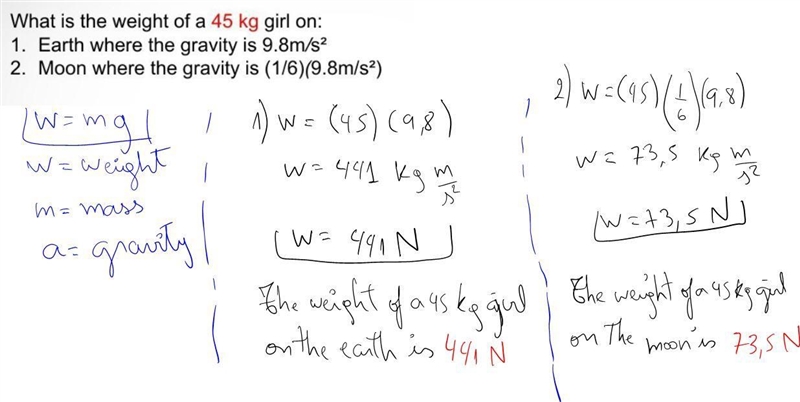 What is the weight of a 45 kg girl on:
1. Earth where the gravity is 9.8m/s²
2. Moon where the gravity is (1/6)(9.8m/s²)
W = mg
W = weight
m = mass
a = gravity
1) W = (45) (9,8)
W = 441 kg m/s²
W = 441 N
The weight of a 45 kg girl
on the earth is 441 N
2) W = (45) (1/6) (9,8)
W = 73,5 kg m/s²
W = 73,5 N
The weight of a 45 kg girl
on The moon is 73,5 N